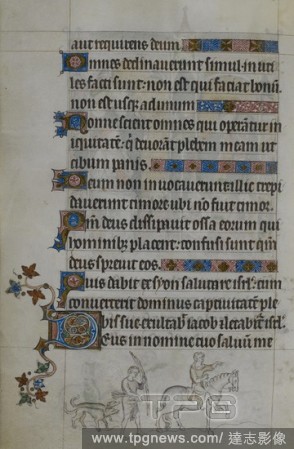 aut requirens deum.
Omnes declinaverunt simul inuti
les facti sunt: non est qui faciat bonū.
non est usq; ad unum
Nonne scient omnes qui operātur in
iquitatē: q̄ devorāt plebem meam ut
cibum panis.
Deum non invocaverunt illic trepi
daverunt timore ubi nō fuit timor.
Qm̄ deus dissipavit ossa eorum qui
hominib; placent: confusi sunt qm̄
deus sprevit eos.
Quis dabit ex syon salutare isrl': cum
converterit dominus captivitatē ple
bis sue exultab' iacob 7 letabit' isrl'.
Deus in nomine tuo salvum me
TPG
www.tpgnews.com / 達志影像